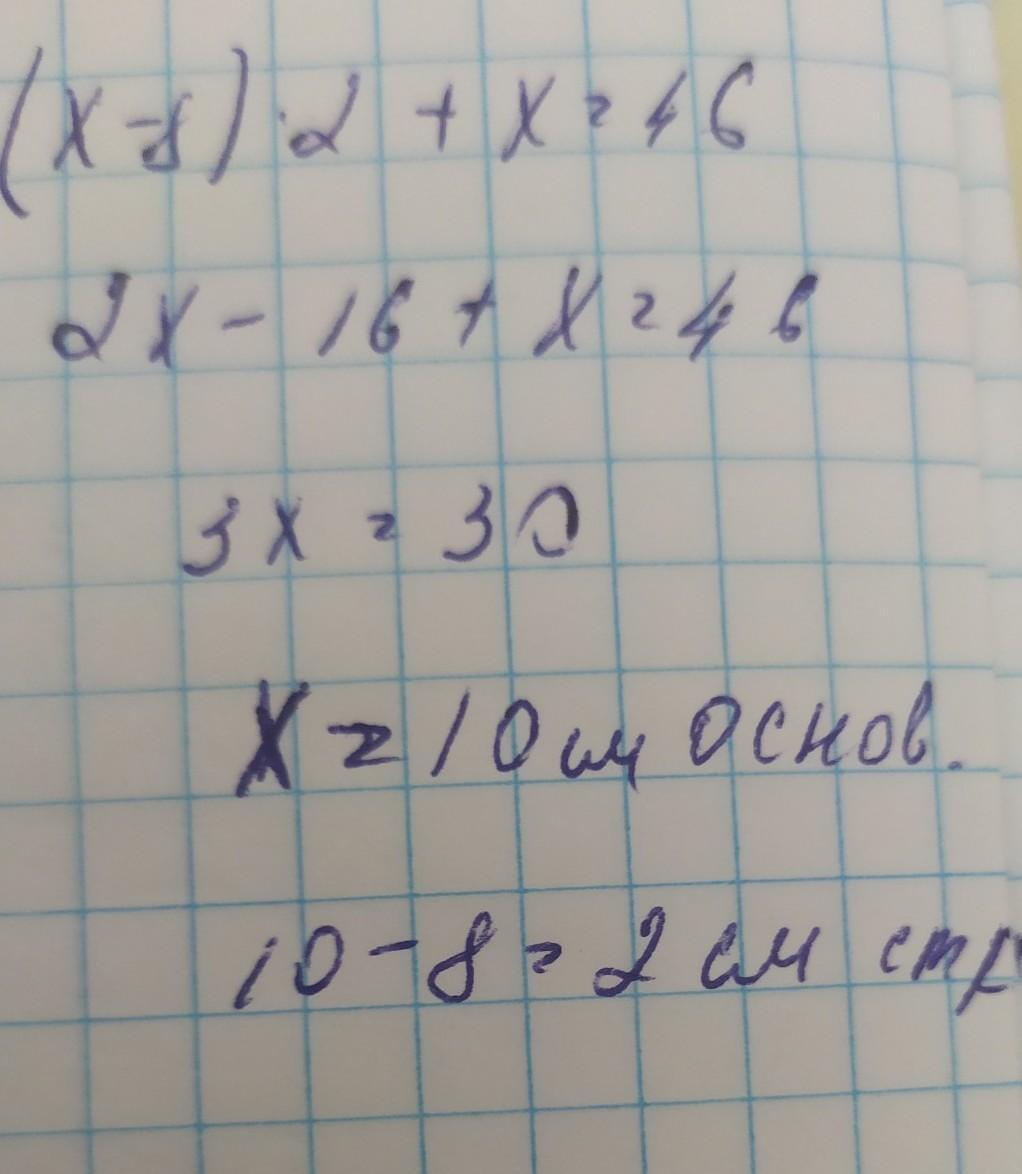 (x-8)·2+x=46
2x-16+x=46
3x=30
x=10см основ.
10-8=2см стр